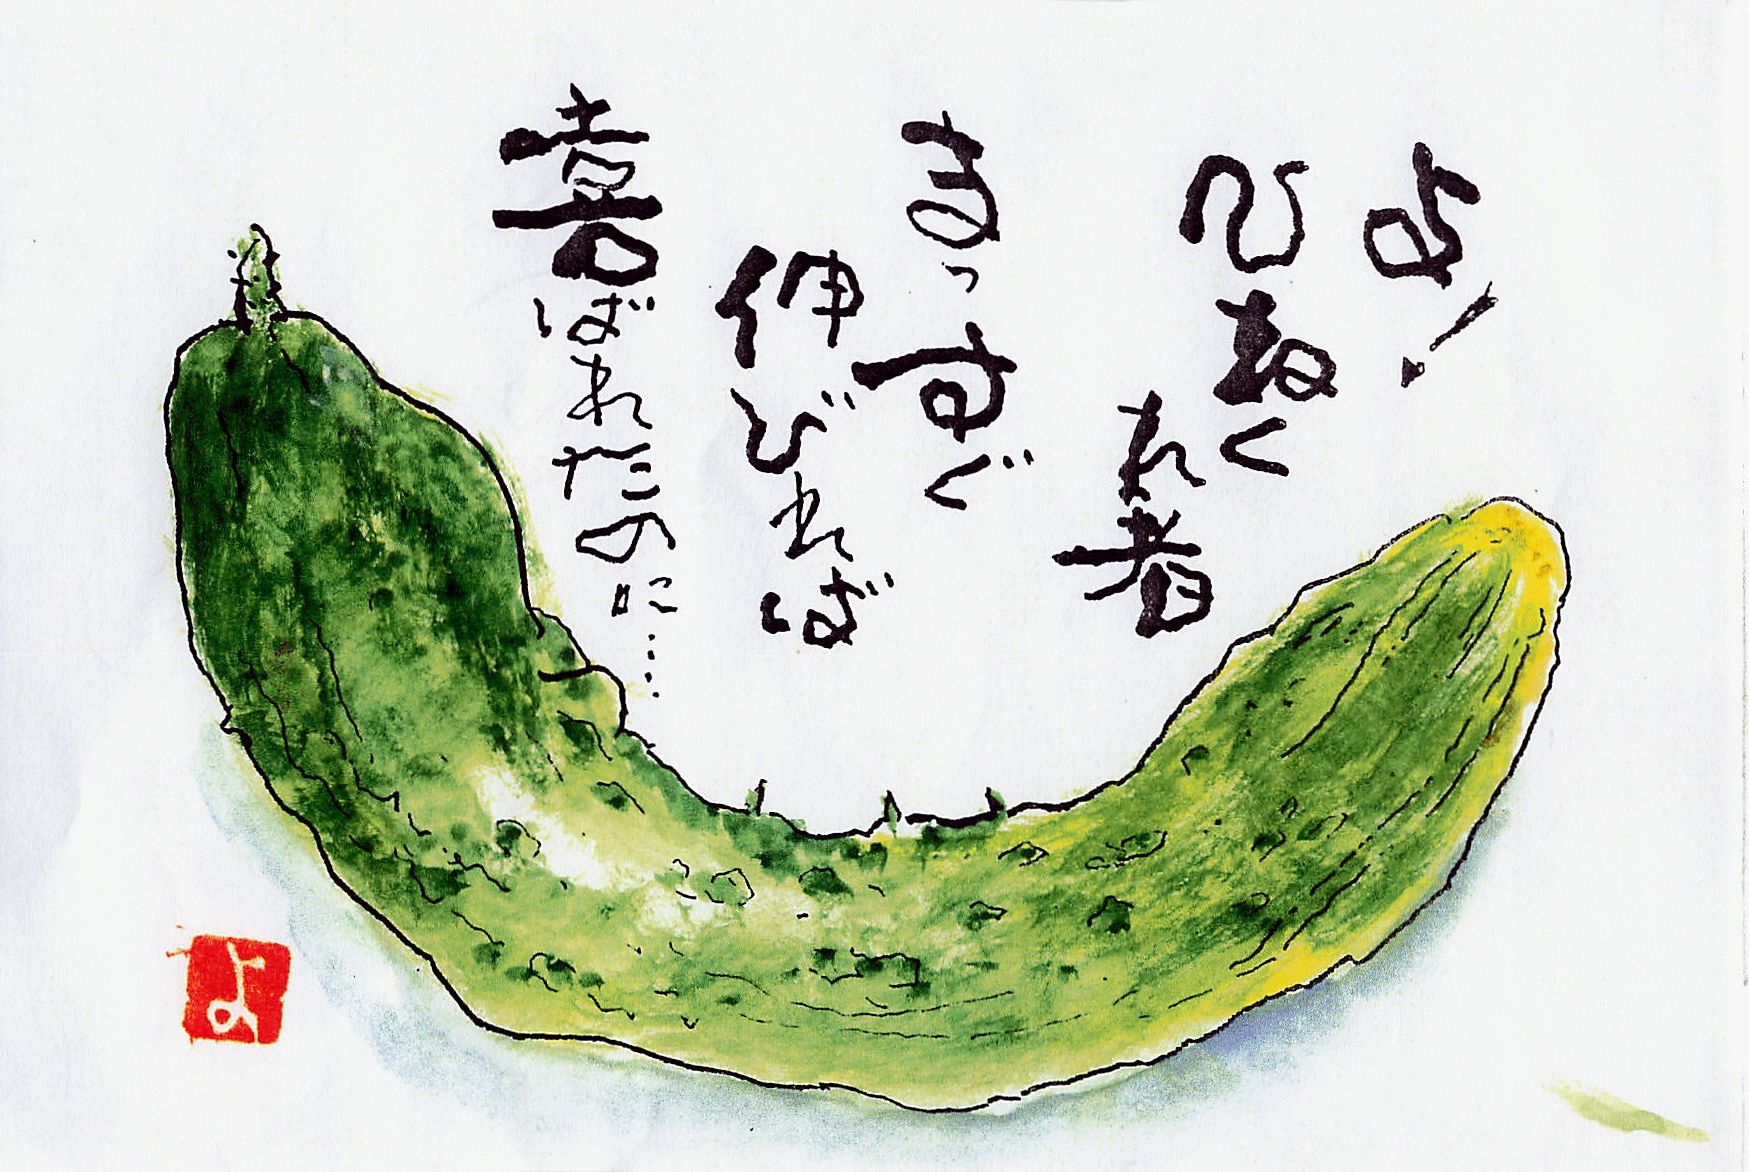 よ!
ひねく
れ者
まっすぐ
伸びれば
喜ばれたのに……
よ